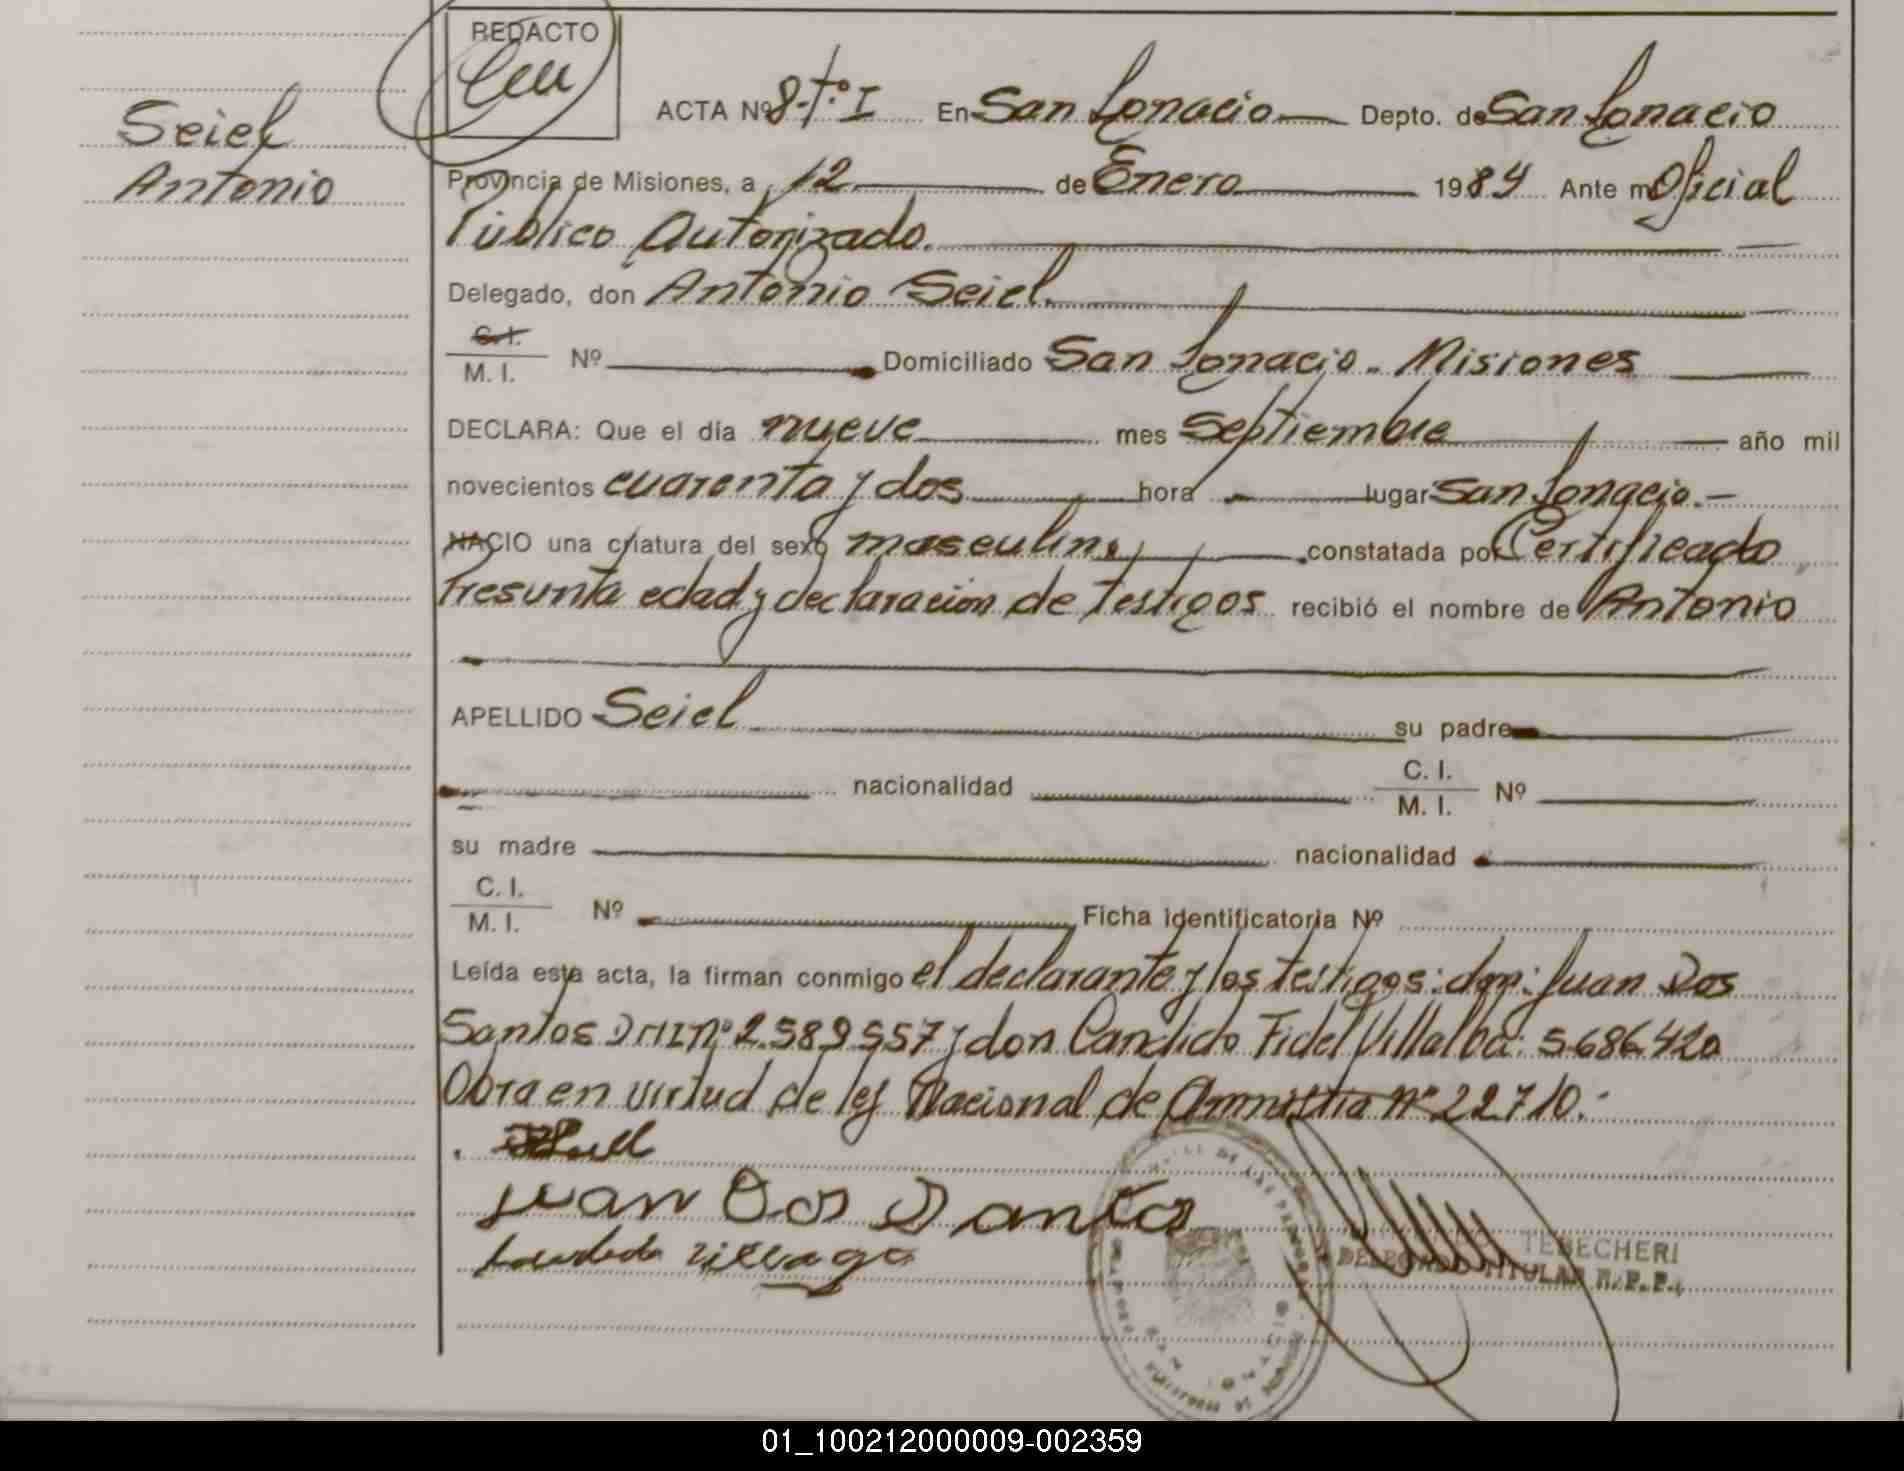 REDACTO
Seiel
Antonio
ACTA Nº 8-Tº I En San Ignacio Depto. de San Ignacio
Provincia de Misiones, a 12 de Enero 1984 Ante mí Oficial
Público Autorizado.
Delegado, don Antonio Seiel.
C.I.
M. I. Nº Domiciliado San Ignacio - Misiones
DECLARA: Que el día nueve mes Septiembre año mil
novecientos cuarenta y dos hora lugar San Ignacio.-
NACIO una criatura del sexo masculino constatada por Certificado
Presunta edad y declaración de Testigos recibió el nombre de Antonio
APELLIDO Seiel su padre
nacionalidad C. I.
M. I. Nº
su madre nacionalidad
C. I.
M. I. Nº Ficha identificatoria Nº
Leída esta acta, la firman conmigo el declarante y los testigos: don: Juan Dos
Santos DMI Nº 2.589.557 y don Candido Fidel Villalba: 5686420
Obra en virtud de ley Nacional de Amnistia nº 22.710.-
Juan Dos Santos
TEBECHERI
DELEGADO TITULAR R.P.P.
01_100212000009-002359